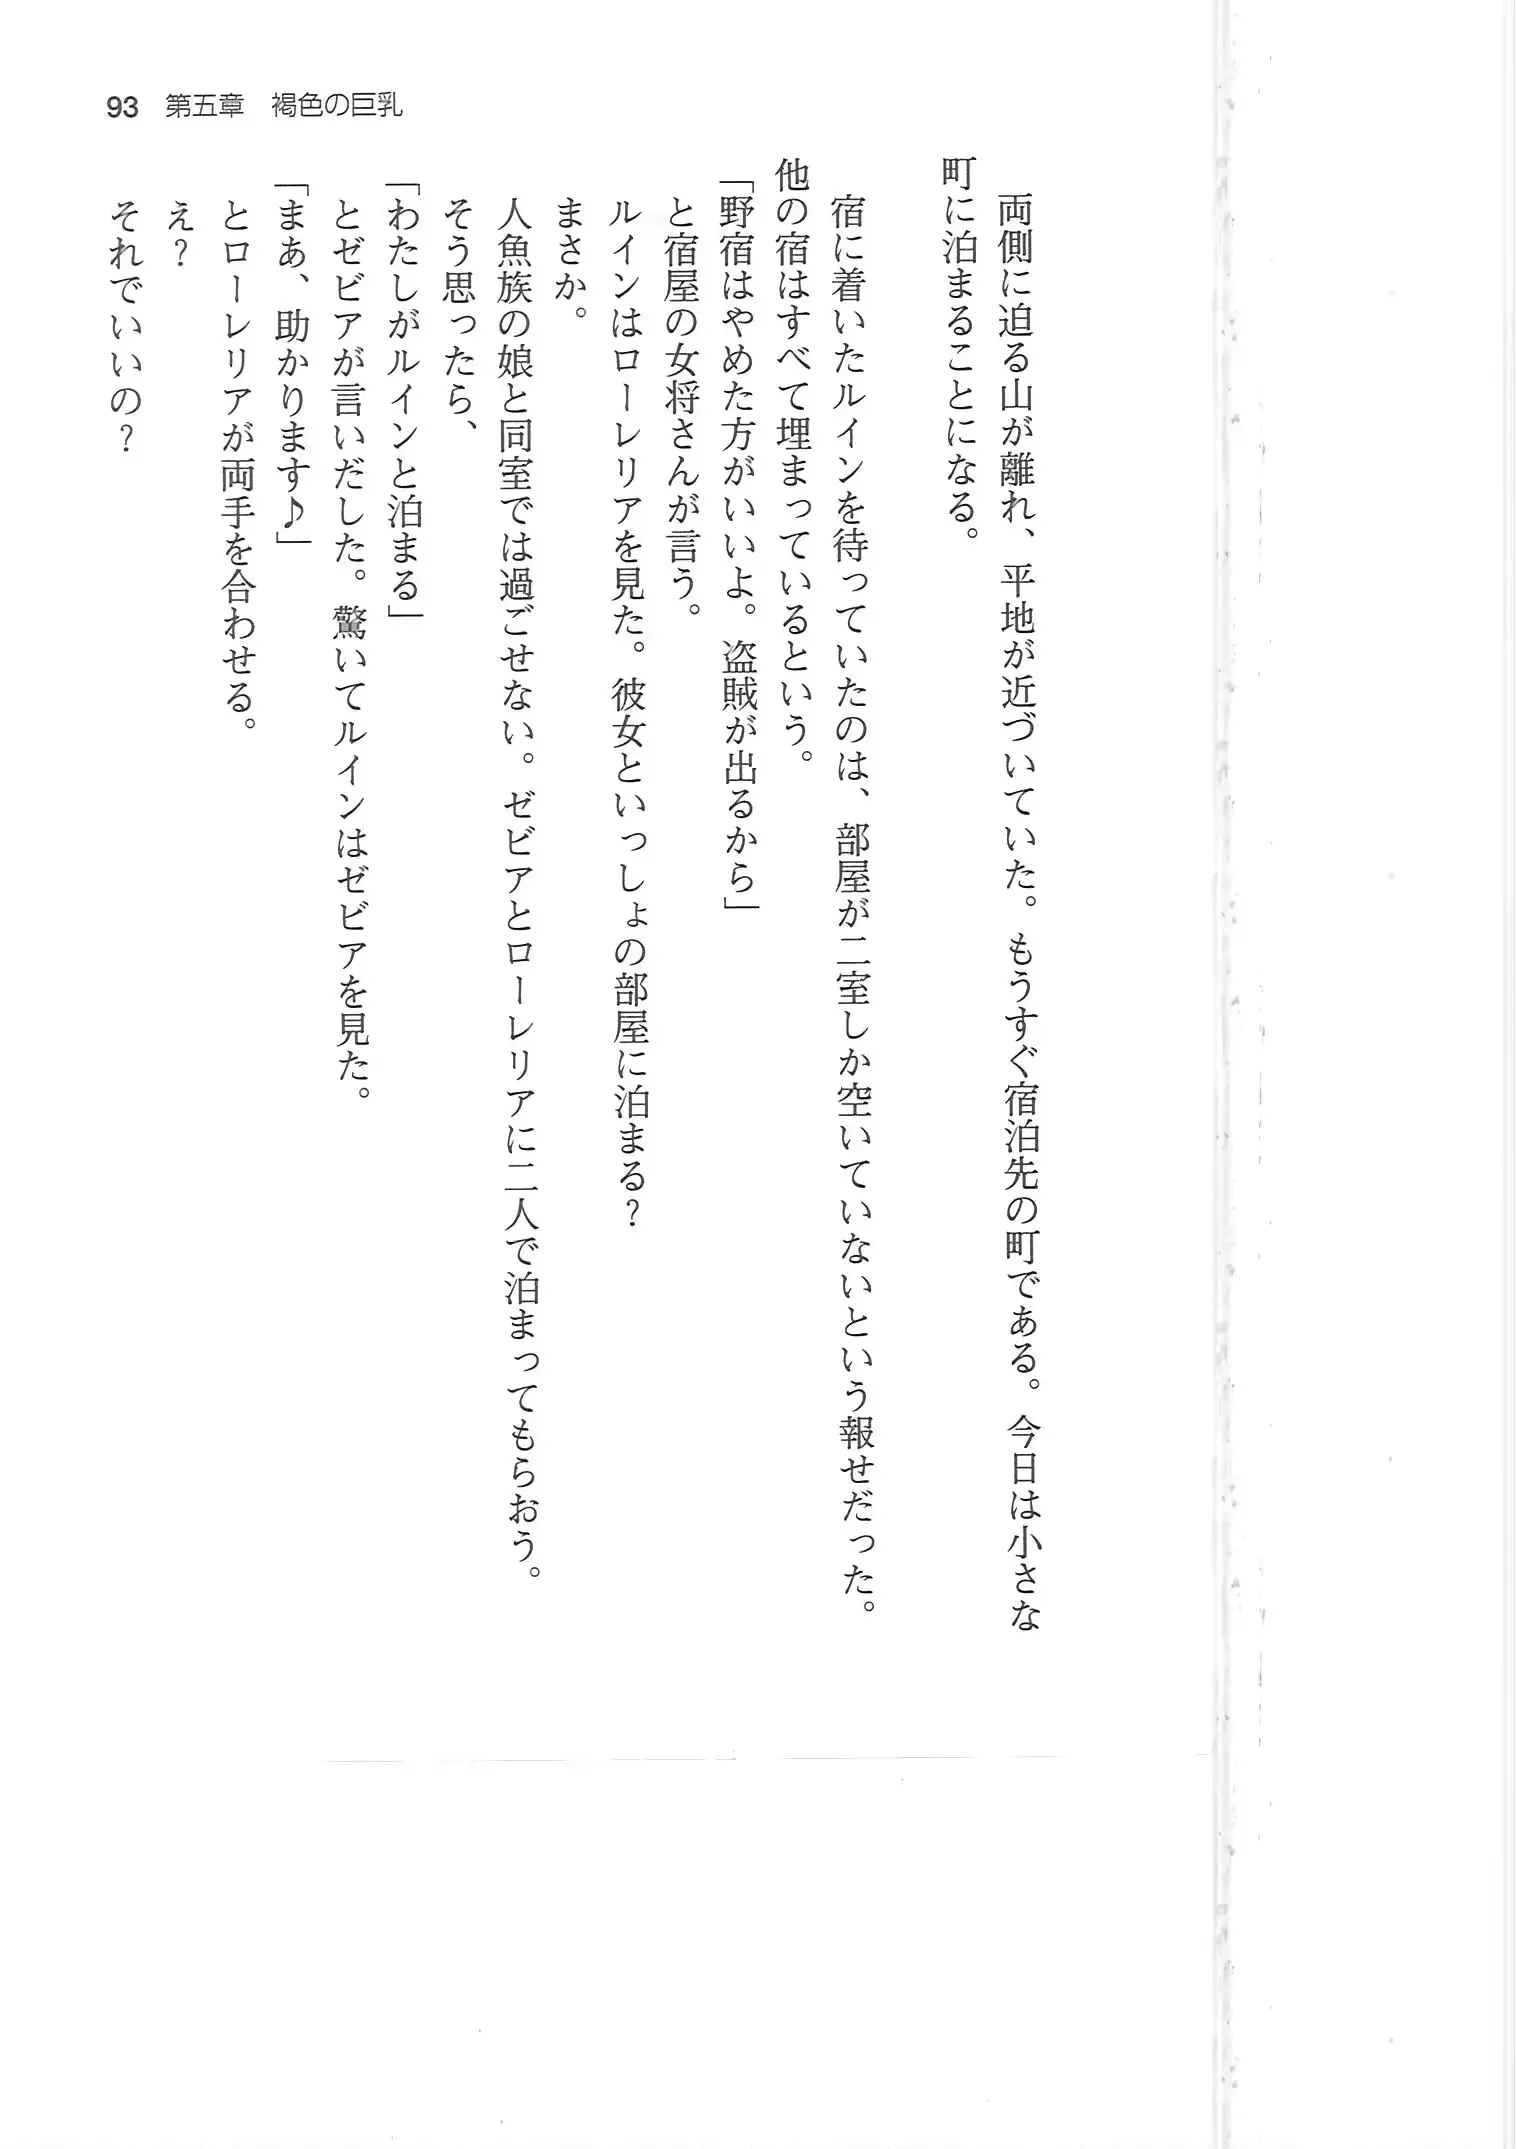 93 第五章 褐色の巨乳
両側に迫る山が離れ、平地が近づいていた。もうすぐ宿泊先の町である。今日は小さな
町に泊まることになる。
宿に着いたルインを待っていたのは、部屋が二室しか空いていないという報せだった。
他の宿はすべて埋まっているという。
「野宿はやめた方がいいよ。盗賊が出るから」
と宿屋の女将さんが言う。
ルインはローレリアを見た。彼女といっしょの部屋に泊まる？
まさか。
人魚族の娘と同室では過ごせない。ゼビアとローレリアに二人で泊まってもらおう。
そう思ったら、
「わたしがルインと泊まる」
とゼビアが言いだした。驚いてルインはゼビアを見た。
「まあ、助かります♪」
とローレリアが両手を合わせる。
え？
それでいいの？